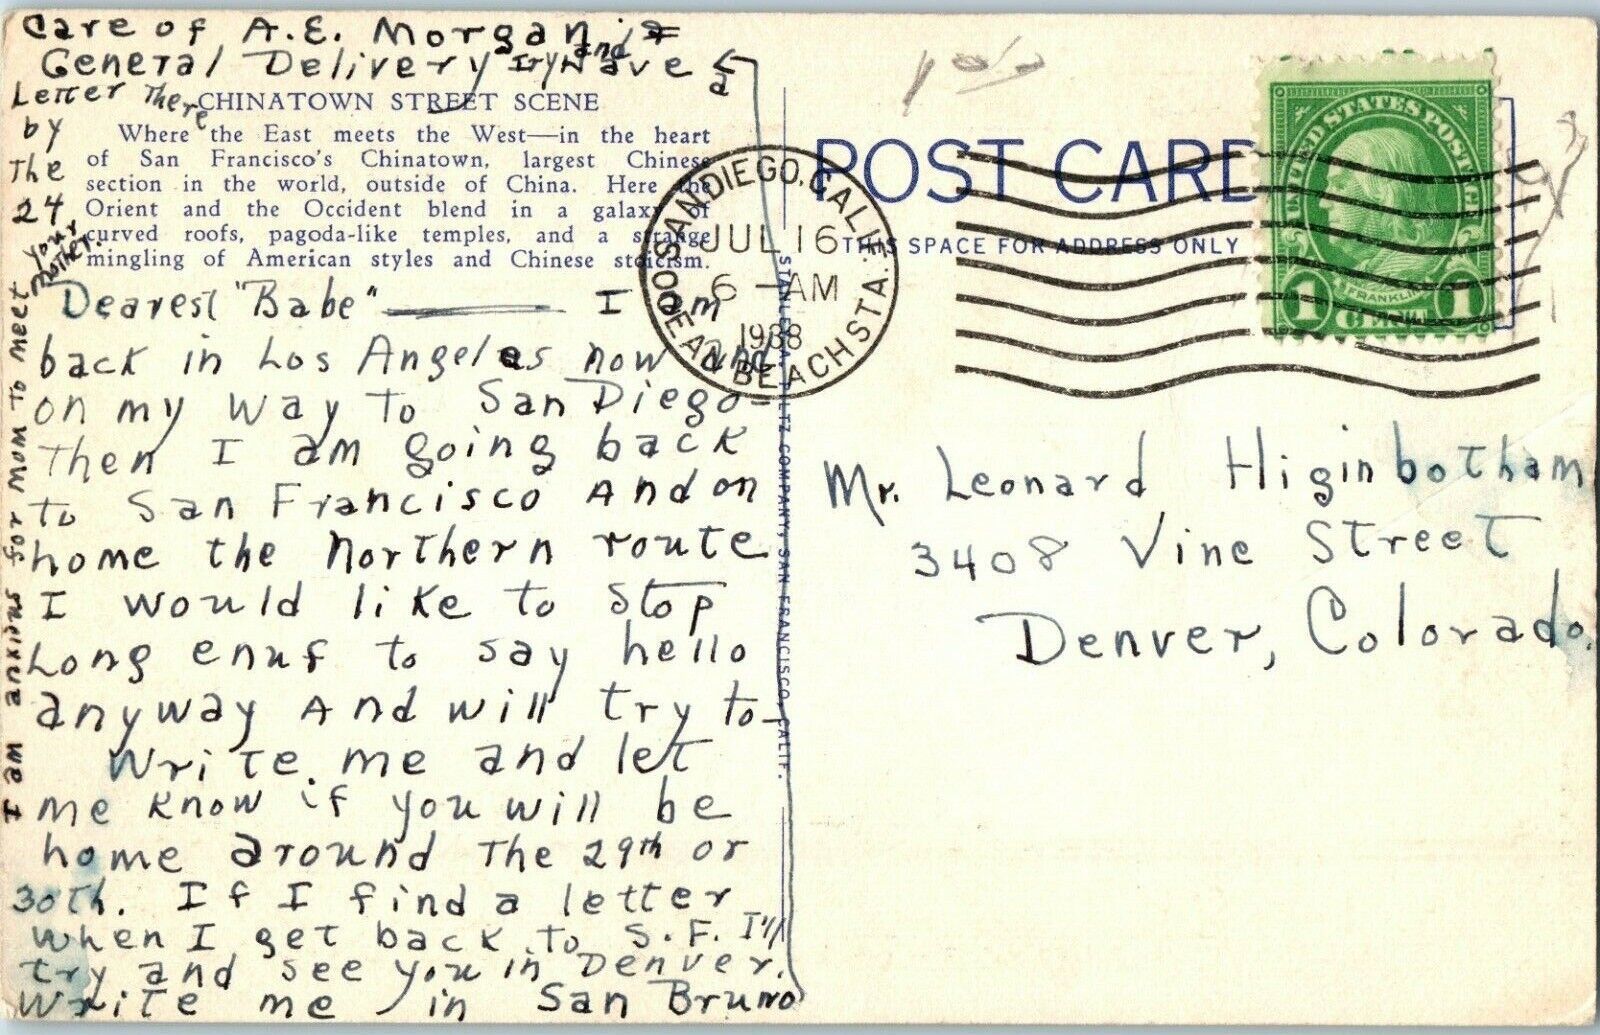 Care of A.E. Morgan
General Delivery Try and have a
Letter There
by
The
24
your
mother.
CHINATOWN STREET SCENE
Where the East meets the West—in the heart
of San Francisco's Chinatown, largest Chinese
section in the world, outside of China. Here the
Orient and the Occident blend in a galaxy of
curved roofs, pagoda-like temples, and a strange
mingling of American styles and Chinese stoicism.
Dearest "Babe" — I am
back in Los Angeles now and
on my way to San Diego-
Then I am going back
to San Francisco And on
home the Northern route
I would like to stop
Long enuf to say hello
anyway And will try to-
Write me and let
me know if you will be
home around The 29th or
30th. If I find a letter
when I get back to S.F. I'll
try and see you in Denver.
Write me in San Bruno
I am anxious for Mom to meet
STANLEY A. PILTZ COMPANY, SAN FRANCISCO, CALIF.
POST CARD
THIS SPACE FOR ADDRESS ONLY
SAN DIEGO, CALIF.
JUL 16
6 - AM
1938
OCEAN BEACH STA.
UNITED STATES POSTAGE
FRANKLIN
1 CENT 1
Mr. Leonard Higinbotham
3408 Vine Street
Denver, Colorado.